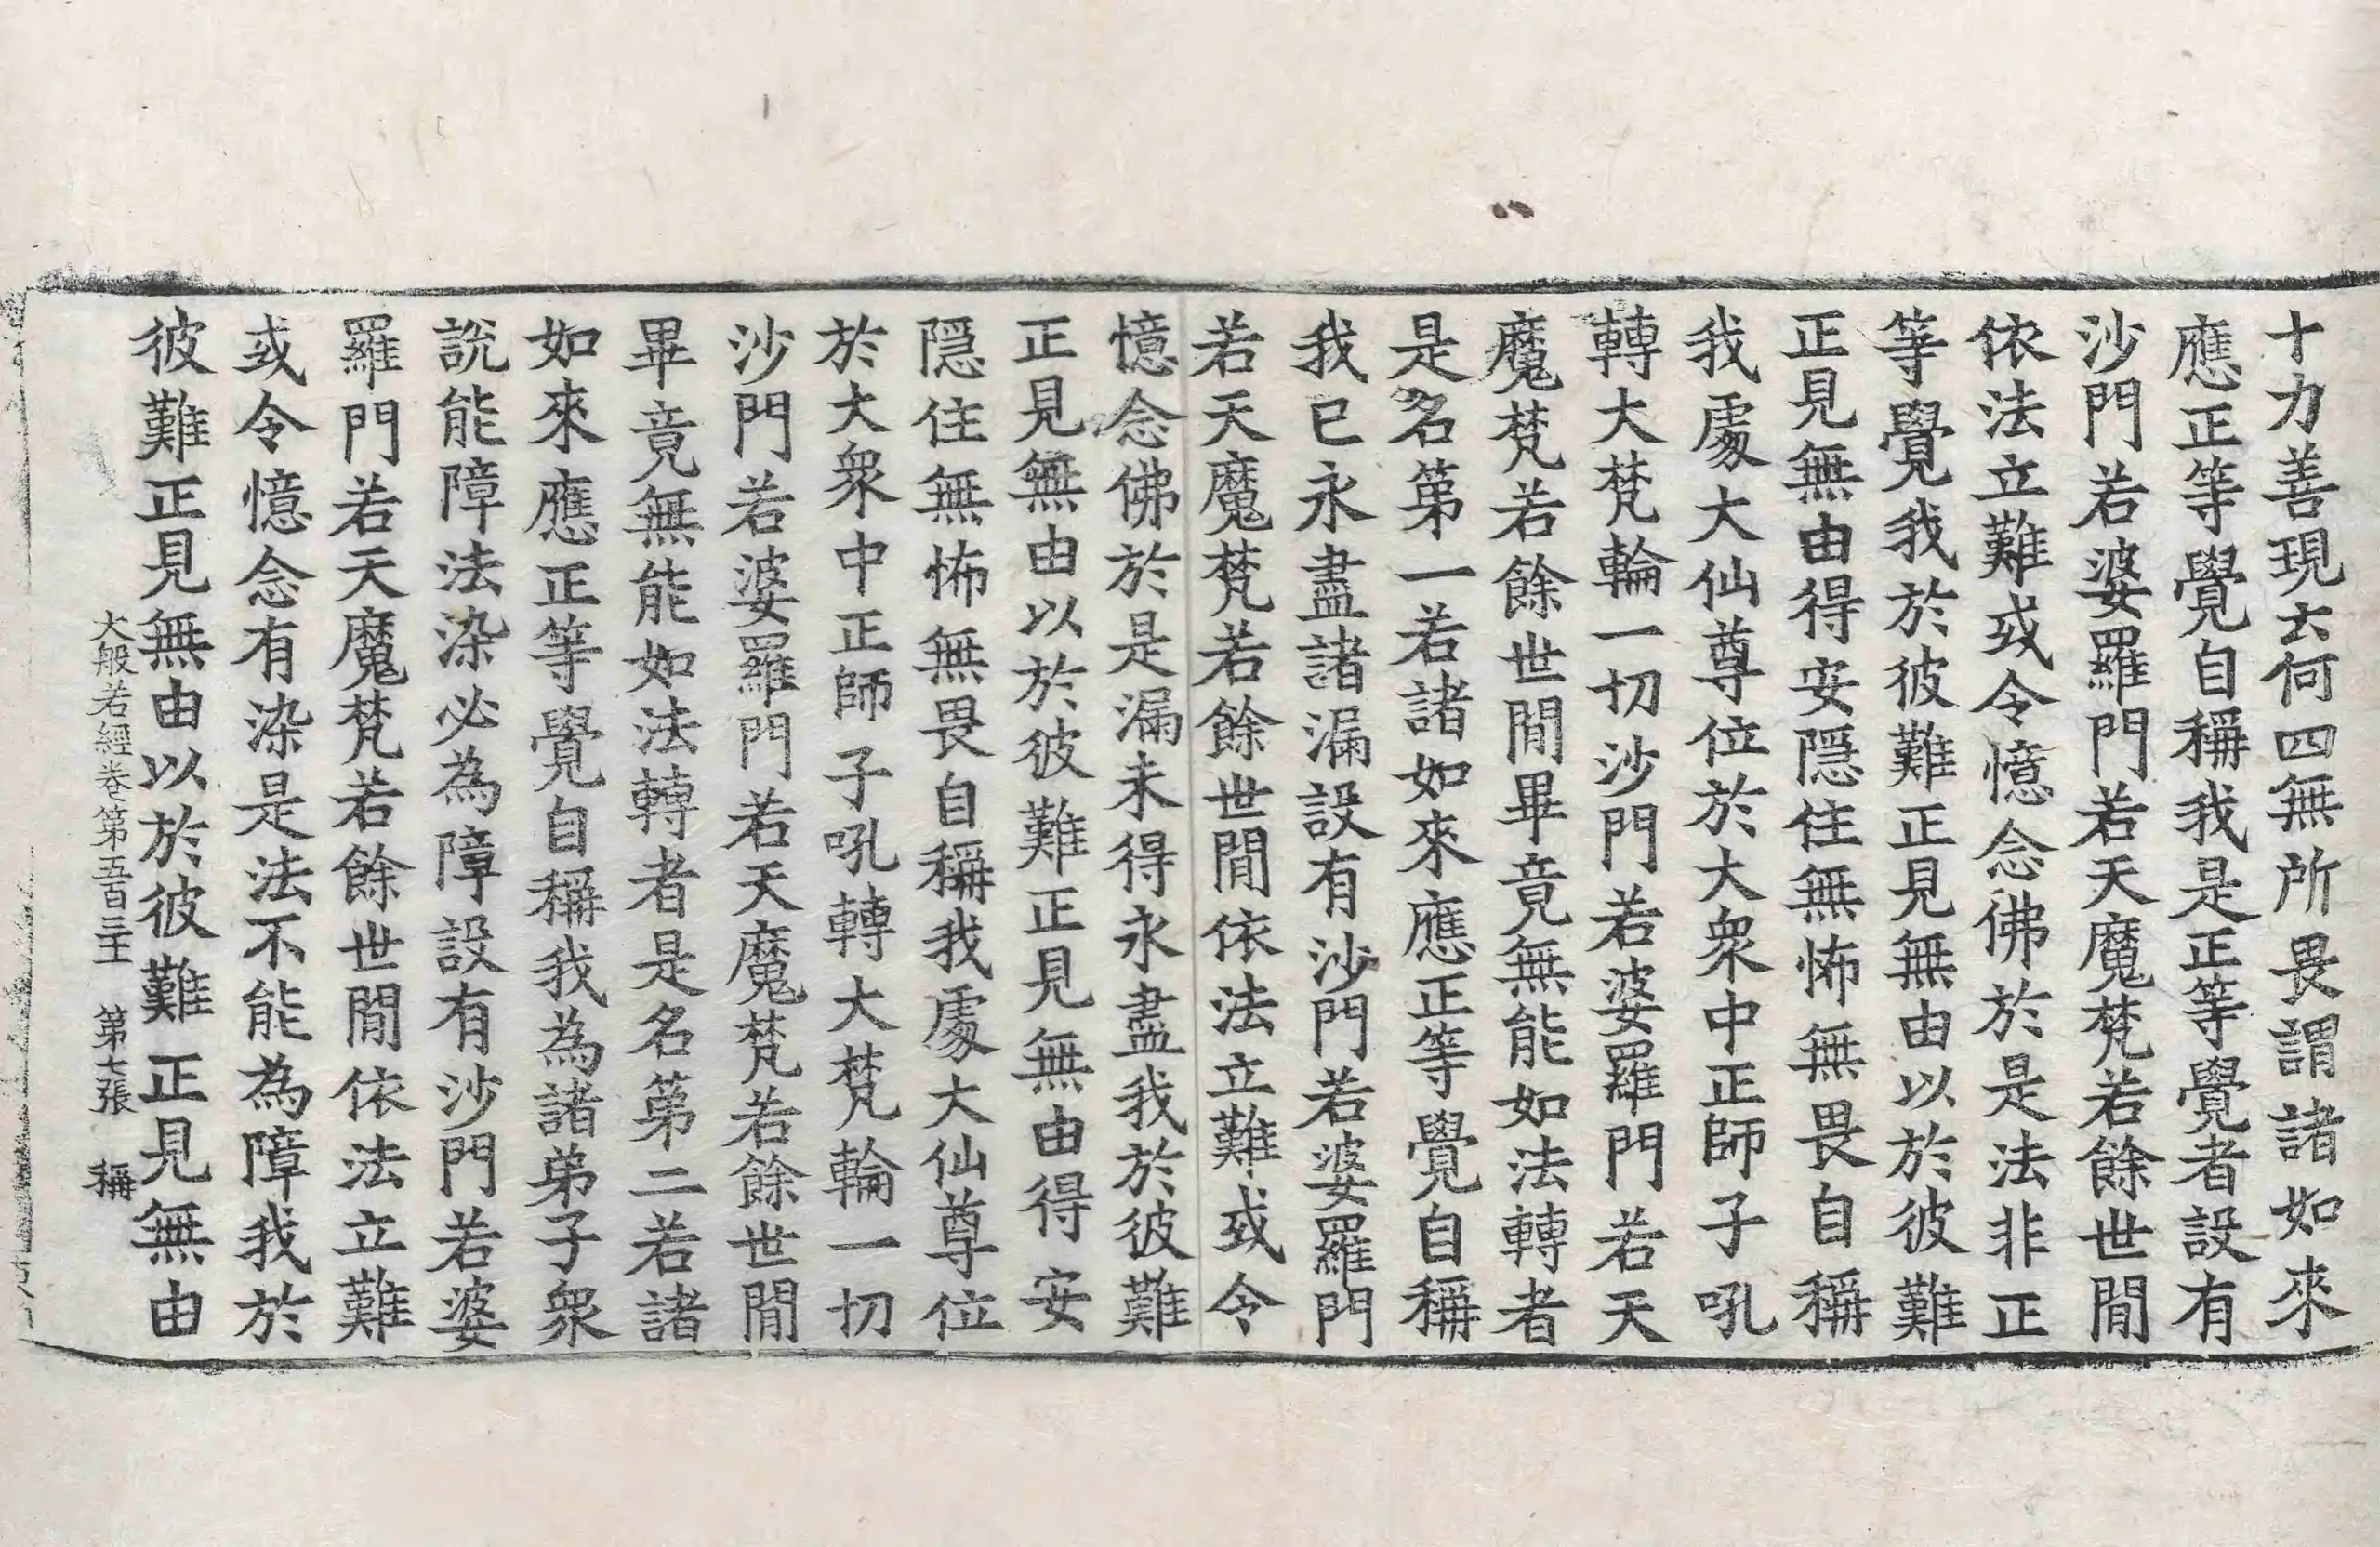 十力善現云何四無所畏謂諸如來
應正等覺自稱我是正等覺者設有
沙門若婆羅門若天魔梵若餘世間
依法立難或令憶念佛於是法非正
等覺我於彼難正見無由以於彼難
正見無由得安隱住無怖無畏自稱
我處大仙尊位於大衆中正師子吼
轉大梵輪一切沙門若婆羅門若天
魔梵若餘世間畢竟無能如法轉者
是名第一若諸如來應正等覺自稱
我已永盡諸漏設有沙門若婆羅門
若天魔梵若餘世間依法立難或令
憶念佛於是漏未得永盡我於彼難
正見無由以於彼難正見無由得安
隱住無怖無畏自稱我處大仙尊位
於大衆中正師子吼轉大梵輪一切
沙門若婆羅門若天魔梵若餘世間
畢竟無能如法轉者是名第二若諸
如來應正等覺自稱我為諸弟子衆
說能障法染必為障設有沙門若婆
羅門若天魔梵若餘世間依法立難
或令憶念有染是法不能為障我於
彼難正見無由以於彼難正見無由
大般若經卷第五百三十 第七張 稱